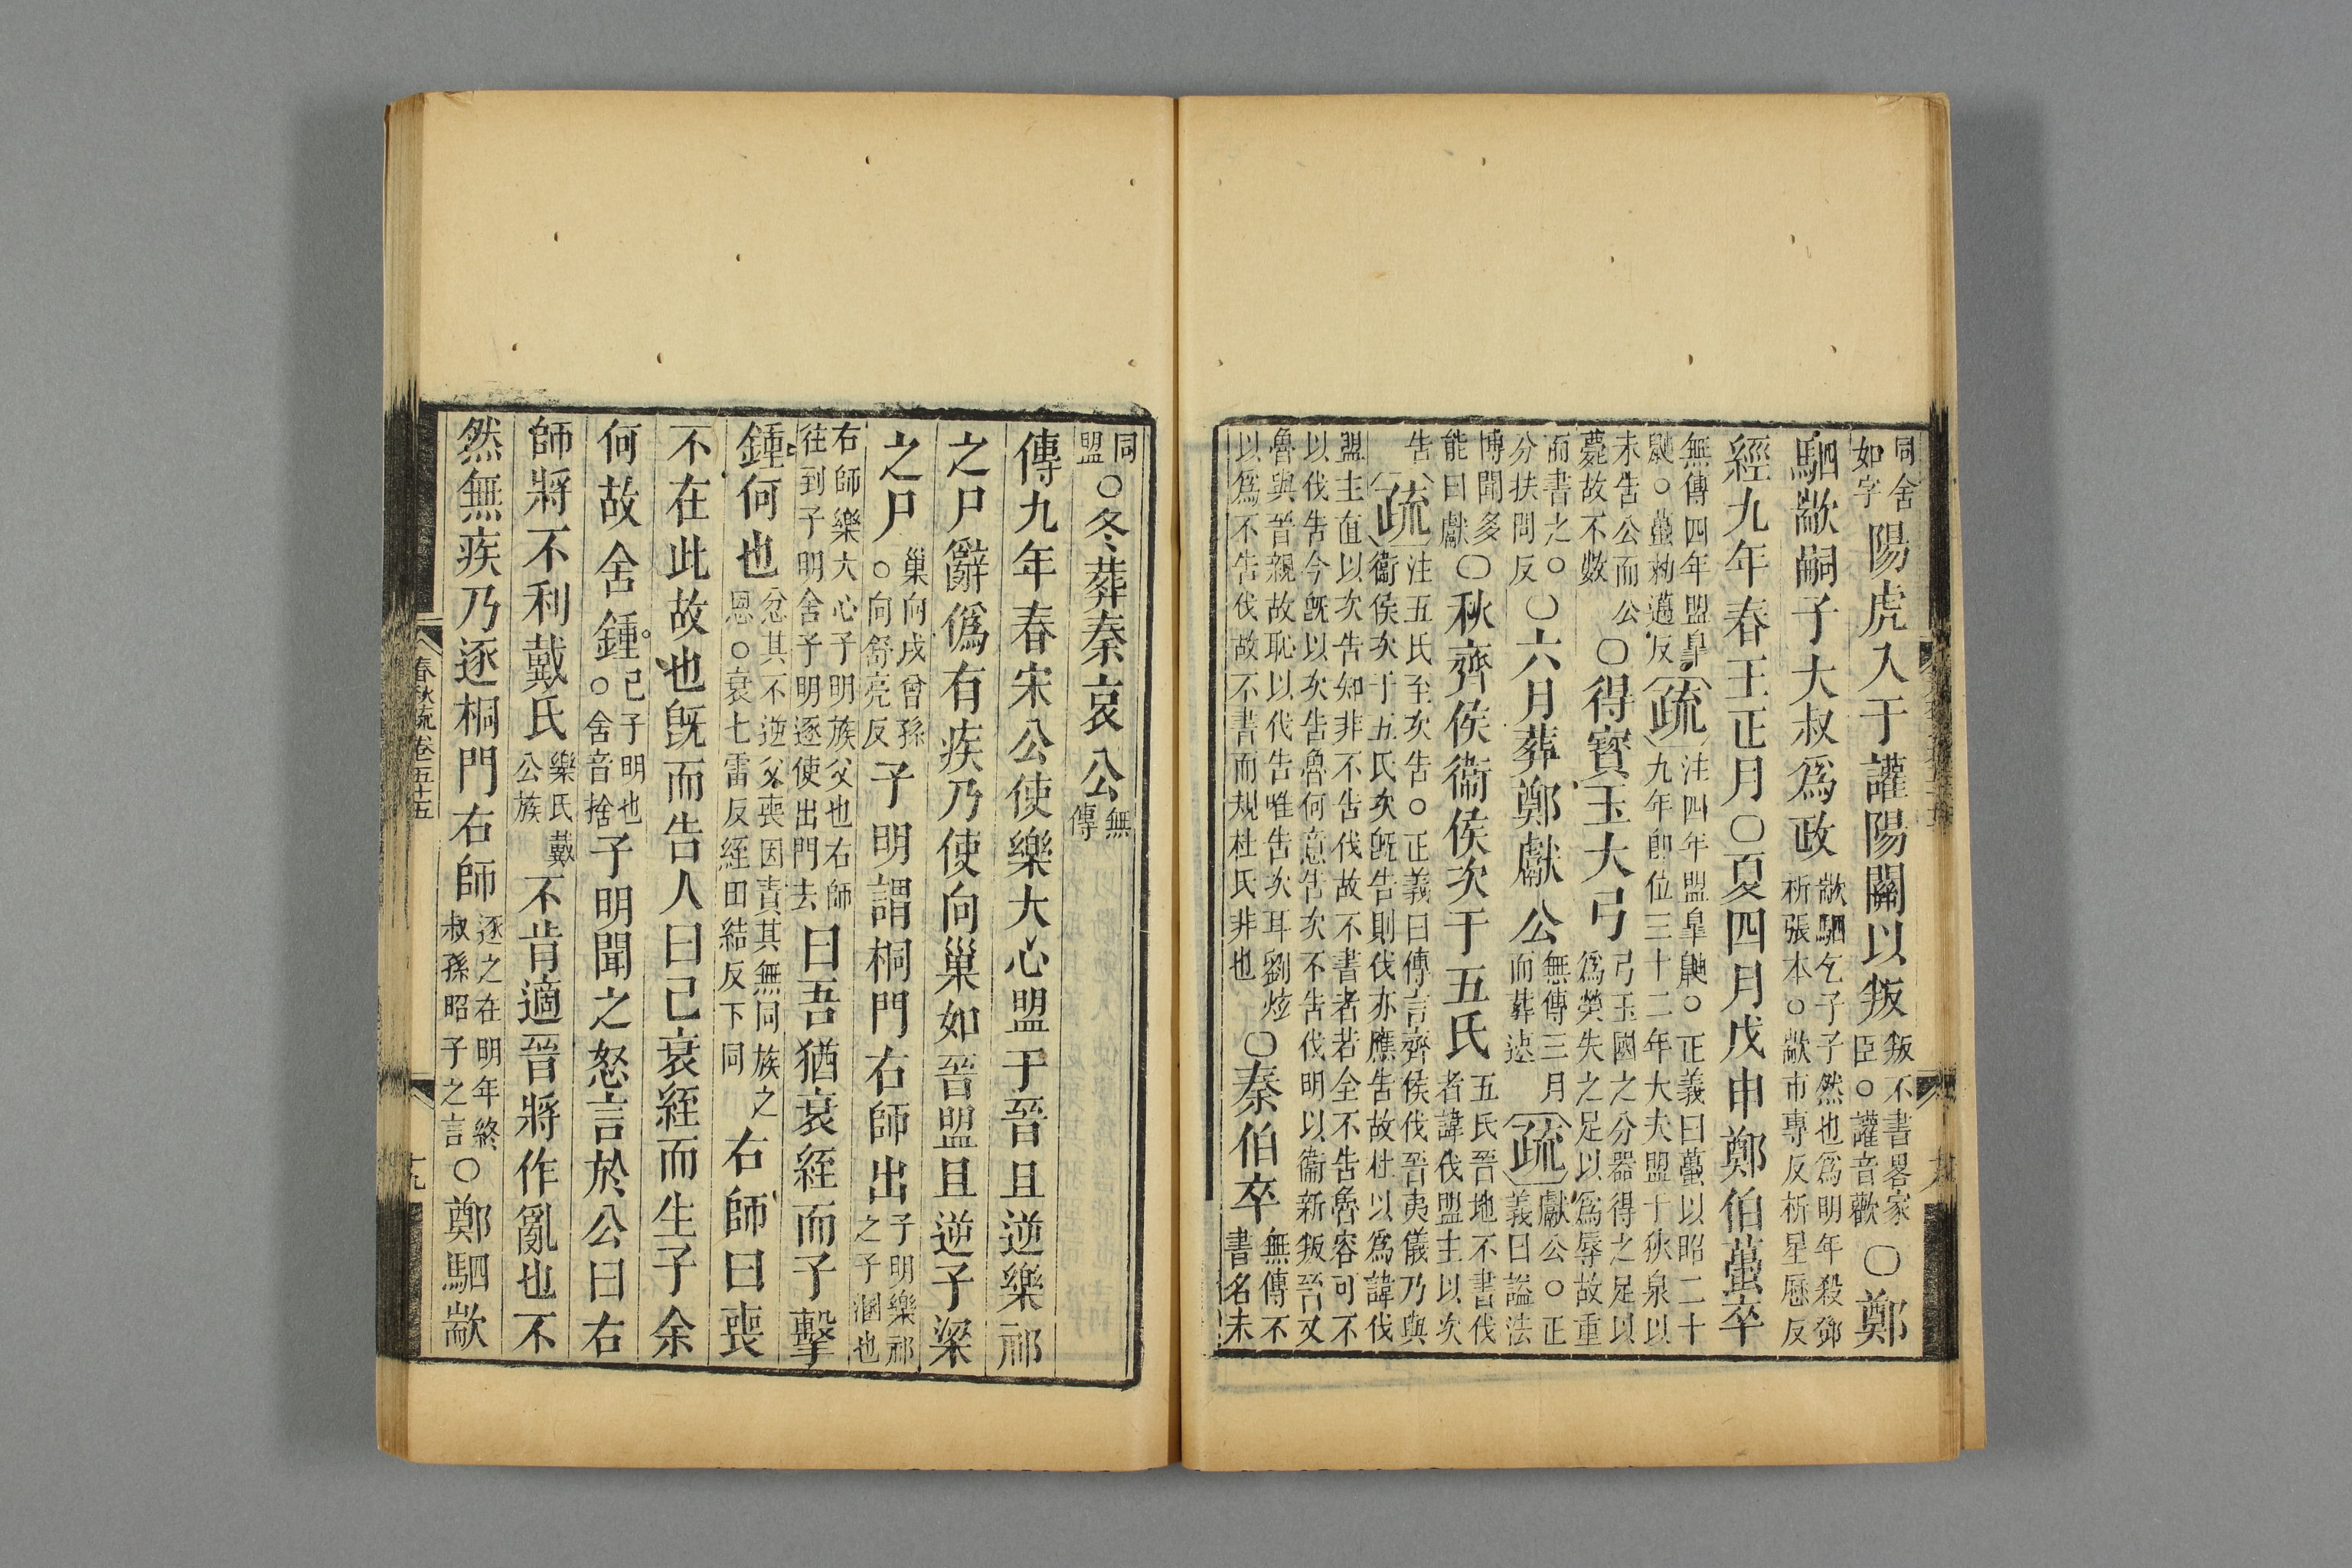 同舍
如字
陽虎入于讙陽關以叛
叛不書畧家
臣○讙音歡
○鄭
駟歂嗣子大叔爲政
歂駟乞子子然也爲明年殺鄧
析張本○歂市專反析星歷反
經九年春王正月○夏四月戊申鄭伯蠆卒
無傳四年盟皐
鼬○蠆勑邁反
疏
注四年盟皐鼬○正義曰蠆以昭二十
九年卽位三十二年大夫盟于狄泉以
未告公而公
薨故不數
○得寶玉大弓
弓玉國之分器得之足以
爲榮失之足以爲辱故重
而書之○
分扶問反
○六月葬鄭獻公
無傳三月
而葬速
疏
獻公○正
義曰諡法
博聞多
能曰獻
○秋齊侯衞侯次于五氏
五氏晉地不書伐
者諱伐盟主以次
告
疏
注五氏至次告○正義曰傳言齊侯伐晉夷儀乃與
衞侯次于五氏次旣告則伐亦應告故杜以爲諱伐
盟主直以次告知非不告伐故不書者若全不告魯容可不
以伐告今旣以次告魯何意告次不告伐明以衞新叛晉又
魯與晉親故恥以伐告唯告次耳劉炫
以爲不告伐故不書而規杜氏非也
○秦伯卒
無傳不
書名未
同
盟
○冬葬秦哀公
無
傳
傳九年春宋公使樂大心盟于晉且逆樂祁
之尸辭僞有疾乃使向巢如晉盟且逆子梁
之尸
巢向戌曾孫
○向舒亮反
子明謂桐門右師出
子明樂祁
之子溷也
右師樂大心子明族父也右師
往到子明舍子明逐使出門去
曰吾猶衰絰而子擊
鍾何也
忿其不逆父喪因責其無同族之
恩○衰七雷反絰田結反下同
右師曰喪
不在此故也旣而告人曰己衰絰而生子余
何故舍鍾
己子明也
○舍音捨
子明聞之怒言於公曰右
師將不利戴氏
樂氏戴
公族
不肯適晉將作亂也不
然無疾乃逐桐門右師
逐之在明年終
叔孫昭子之言
○鄭駟歂
春秋疏卷五十五
十九